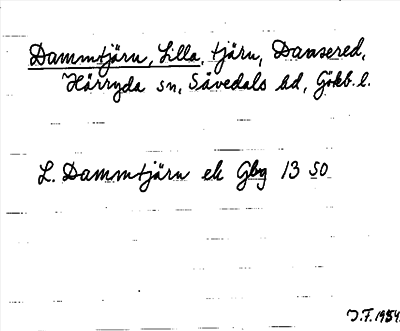 Dammtjärn, Lilla, tjärn, Dansered,
Härryda sn, Sävedals hd, Göteb. l.
L. Dammtjärn ek Gbg 13 SO
J.F. 1954.